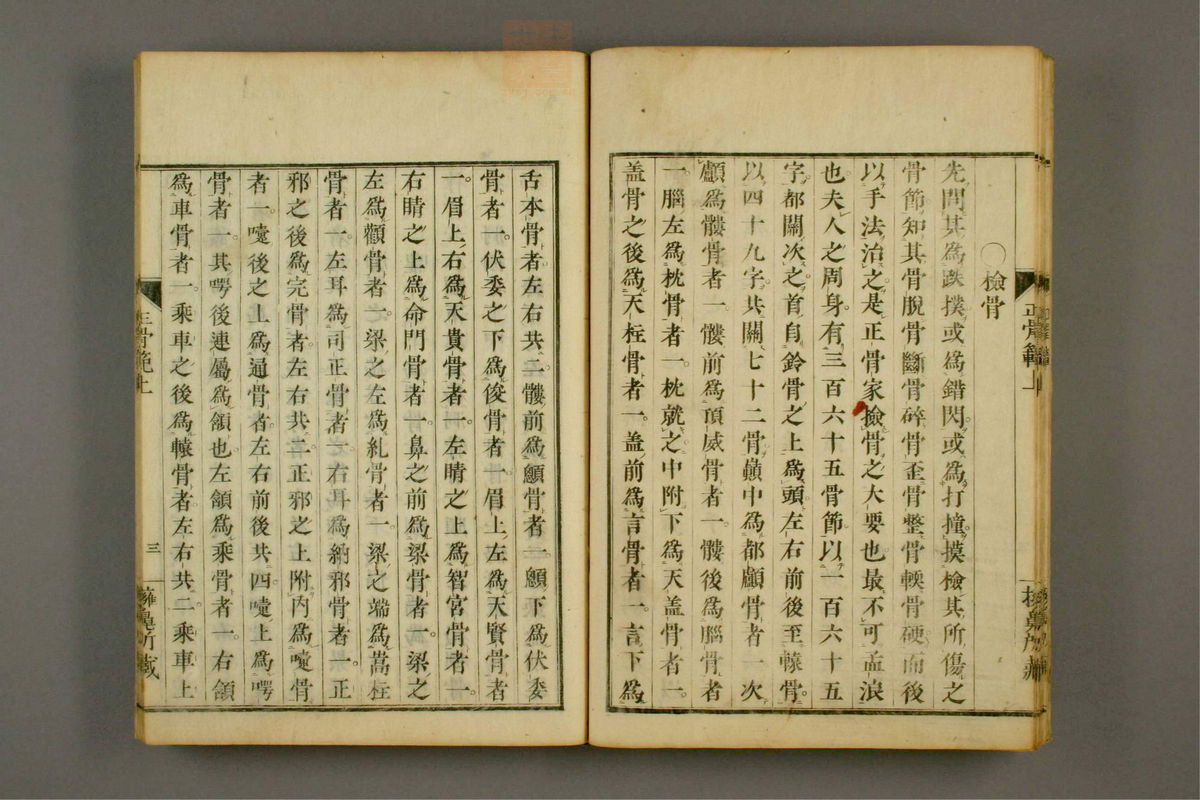 ○檢骨
先問其爲跌撲或爲錯閃或爲打撞摸檢其所傷之
骨節知其骨脫骨斷骨碎骨歪骨整骨輭骨硬而後
以手法治之是正骨家檢骨之大要也最不可孟浪
也夫人之周身有三百六十五骨節以一百六十五
字都關次之首自鈴骨之上爲頭左右前後至轅骨
以四十九字共關七十二骨巔中爲都顱骨者一次
顱爲髏骨者一髏前爲頂威骨者一髏後爲腦骨者
一腦左爲枕骨者一枕就之中附下爲天蓋骨者一
蓋骨之後爲天柱骨者一蓋前爲言骨者一言下爲
舌本骨者左右共二髏前爲顖骨者一顖下爲伏委
骨者一伏委之下爲俊骨者一眉上左爲天賢骨者
一眉上右爲天貴骨者一左睛之上爲智宮骨者一
右睛之上爲命門骨者一鼻之前爲梁骨者一梁之
左爲顴骨者一梁之左爲糺骨者一梁之端爲嵩柱
骨者一左耳爲司正骨者一右耳爲納邪骨者一正
邪之後爲完骨者左右共二正邪之上附內爲嚏骨
者一嚏後之上爲通骨者左右前後共四嚏上爲㗁
骨者一其㗁後連屬爲頷也左頷爲乘骨者一右頷
爲車骨者一乘車之後爲轅骨者左右共二乘車上
正骨範上
三